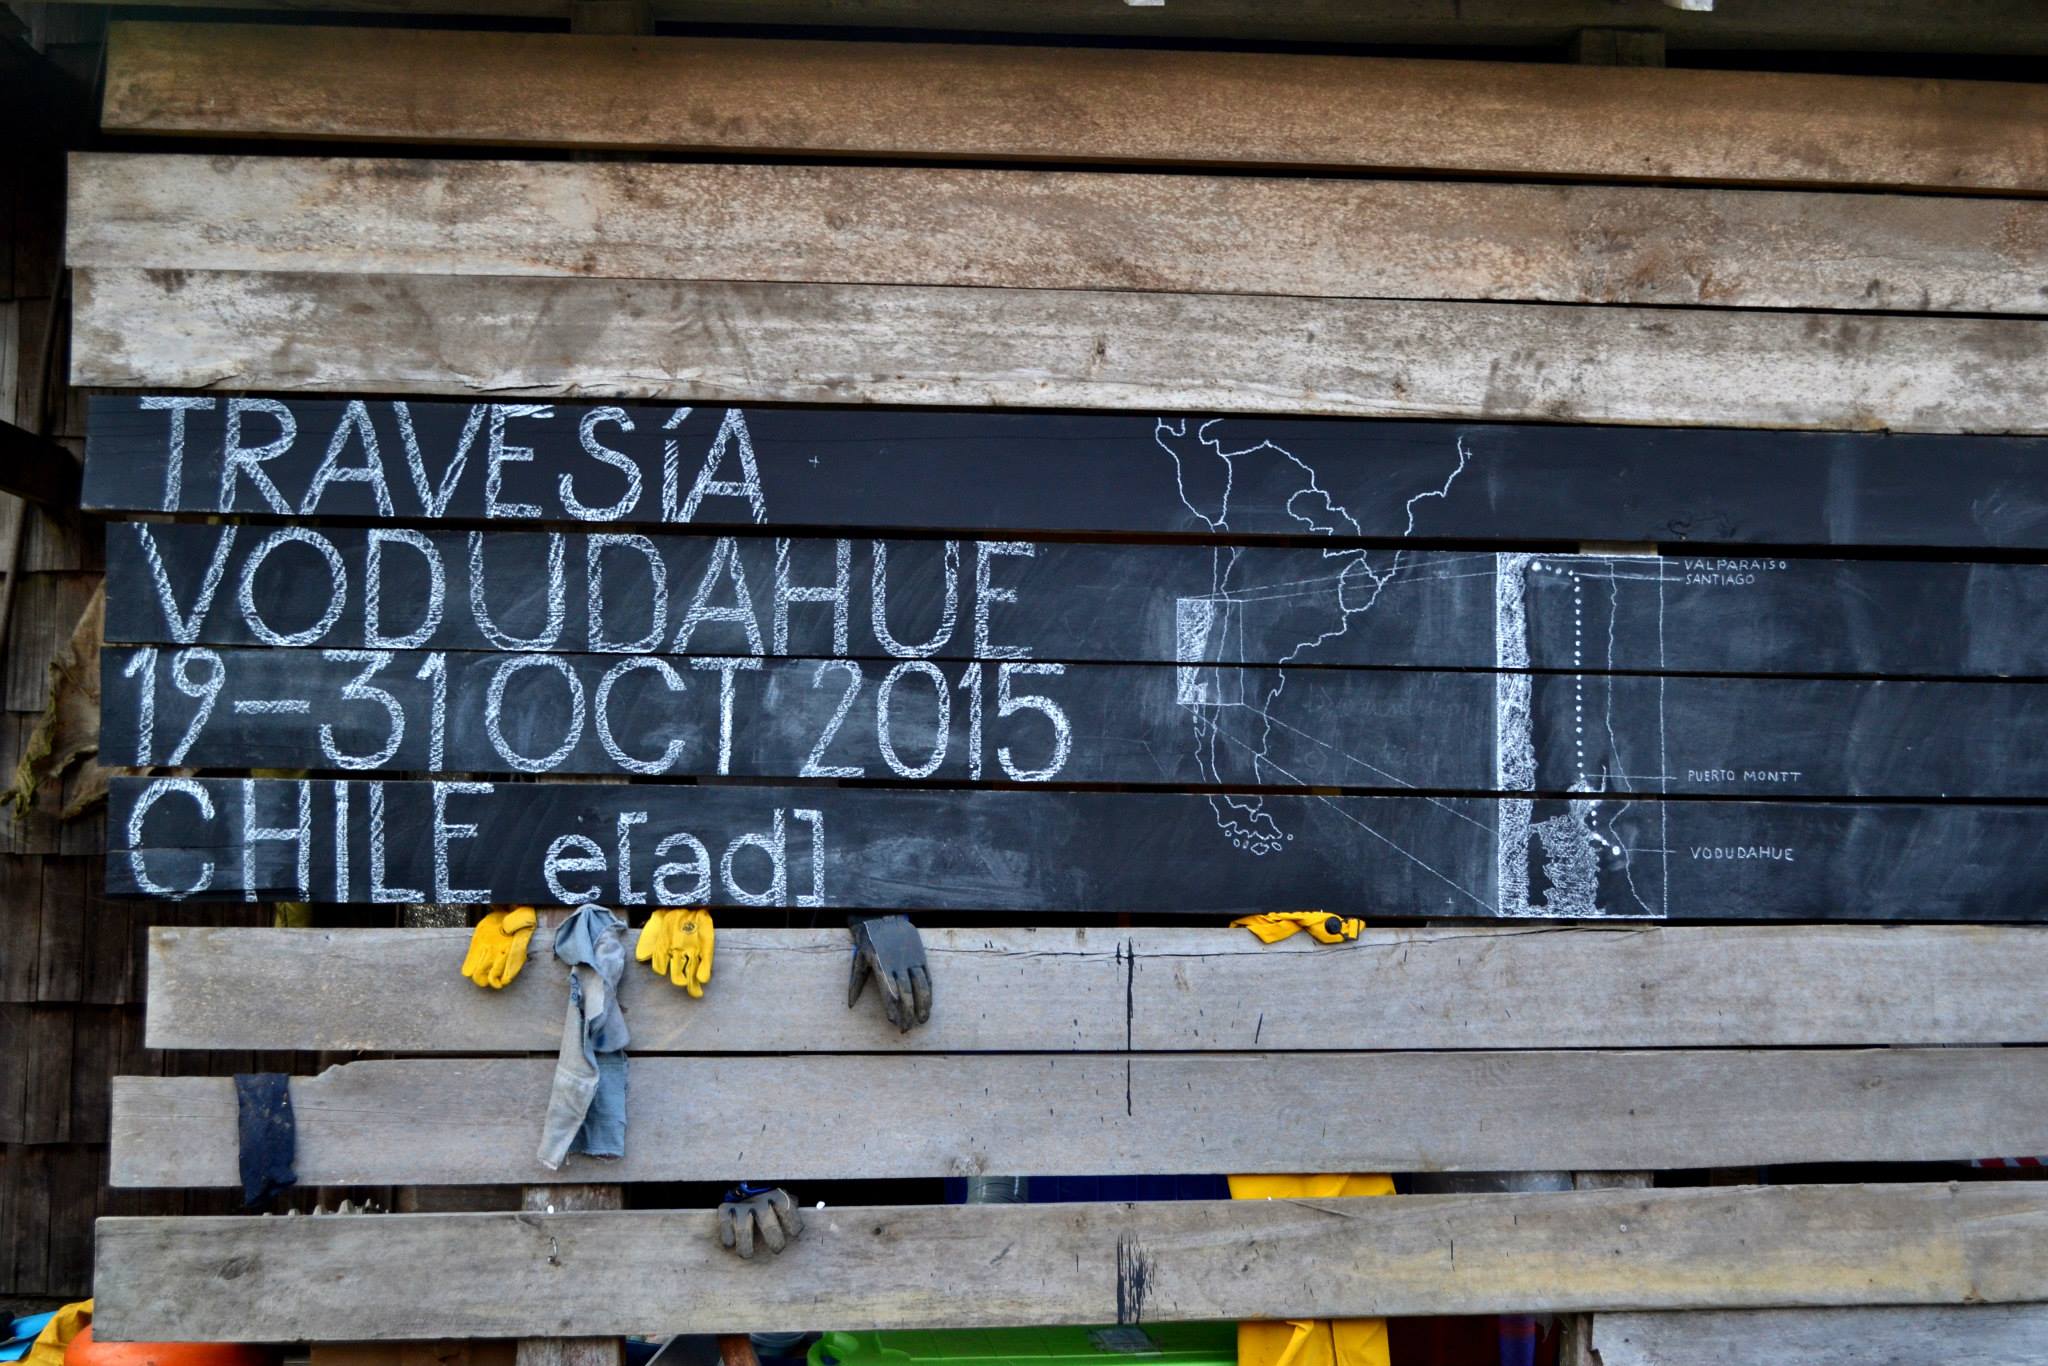 TRAVESÍA
VODUDAHUE
19-31 OCT 2015
CHILE e[ad]
VALPARAISO
SANTIAGO
PUERTO MONTT
VODUDAHUE